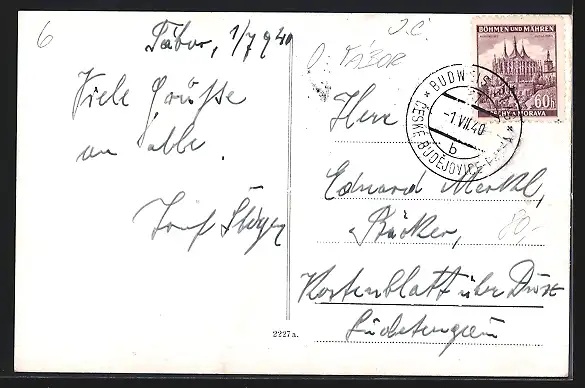 6
Tábor, 1/7 940
Viele Grüße
an alle.
Josef
O: TÁBOR
BÖHMEN UND MÄHREN
60h
ČECHY A MORAVA
BUDWEIS
-1.VII.40
b
ČESKÉ BUDĚJOVICE
Herr
Eduard Merkl,
Bäcker,
80,-
Kostenblatt über Dux
Sudetengau
2227a.